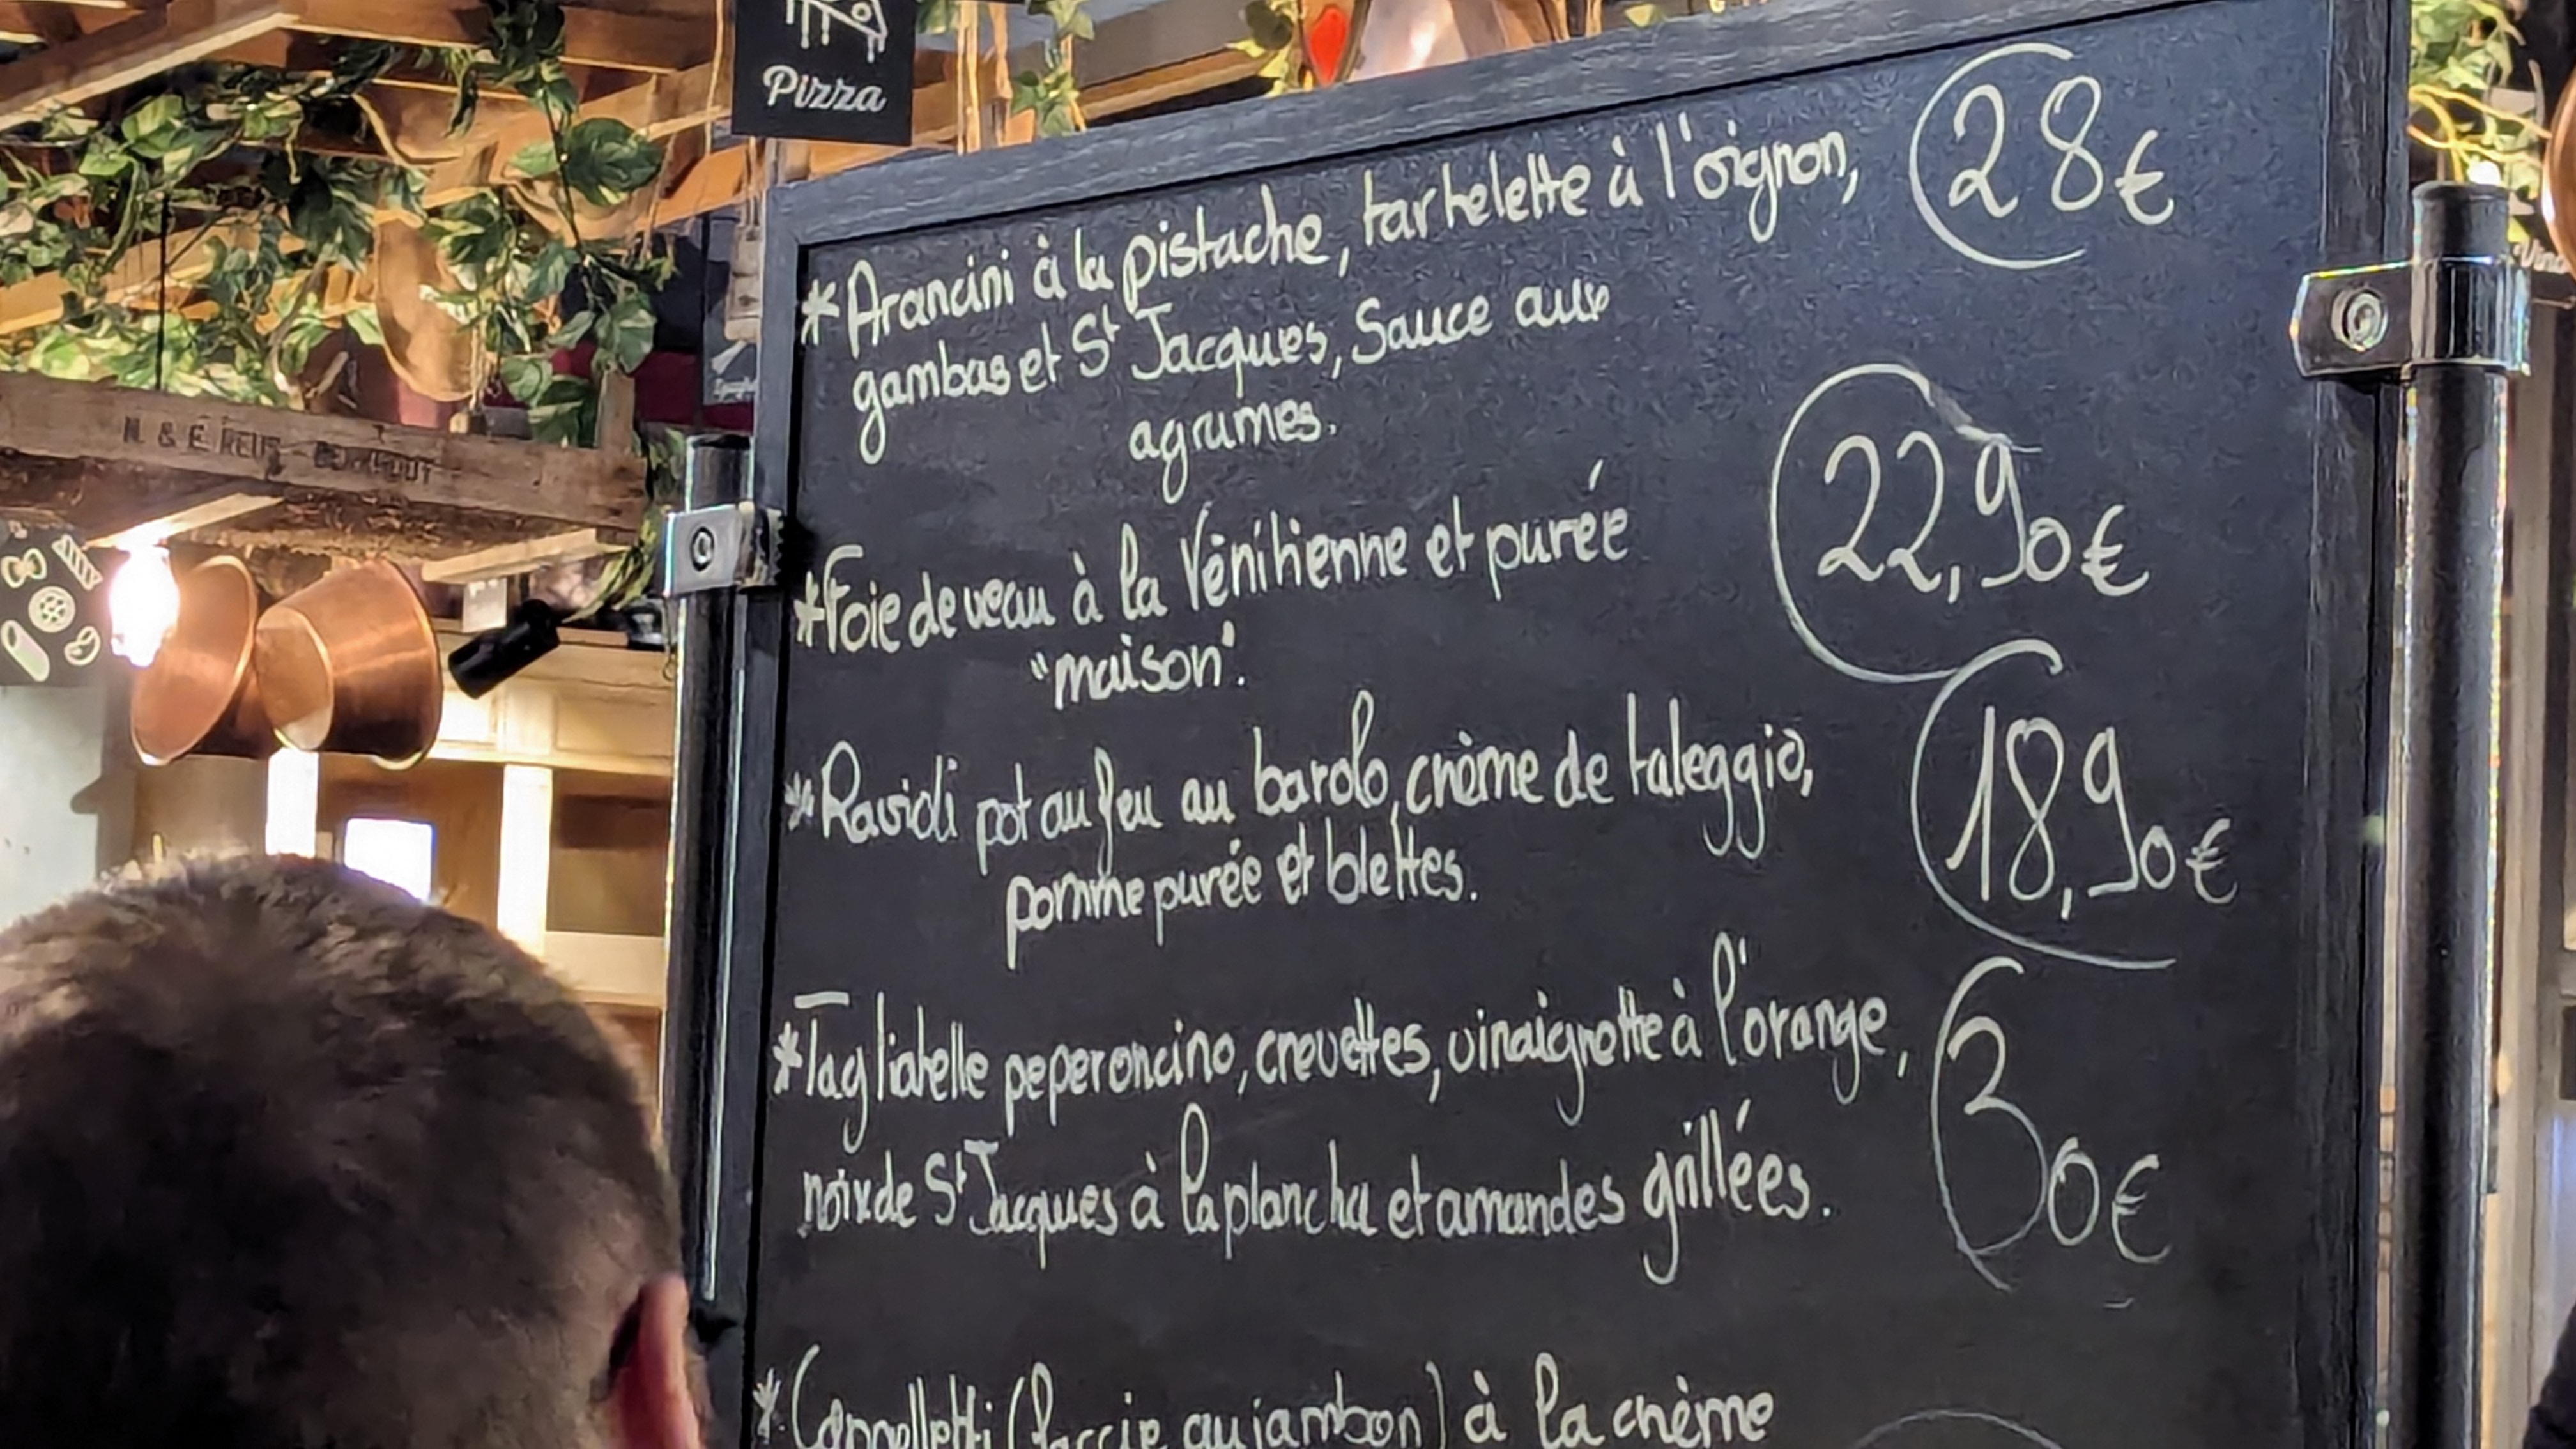 Pizza
*Arancini à la pistache, tartelette à l'oignon, 28€
gambas et St Jacques, Sauce aux
agrumes.
*Foie de veau à la Vénitienne et purée 22,90€
"maison".
*Ravioli pot au feu au barolo, crème de taleggio, 18,90€
pomme purée et blettes.
*Tagliatelle peperoncino, crevettes, vinaigrette à l'orange, 30€
noix de St Jacques à la plancha et amandes grillées.
*Cappelletti (farcie au jambon) à la crème
N. & E.